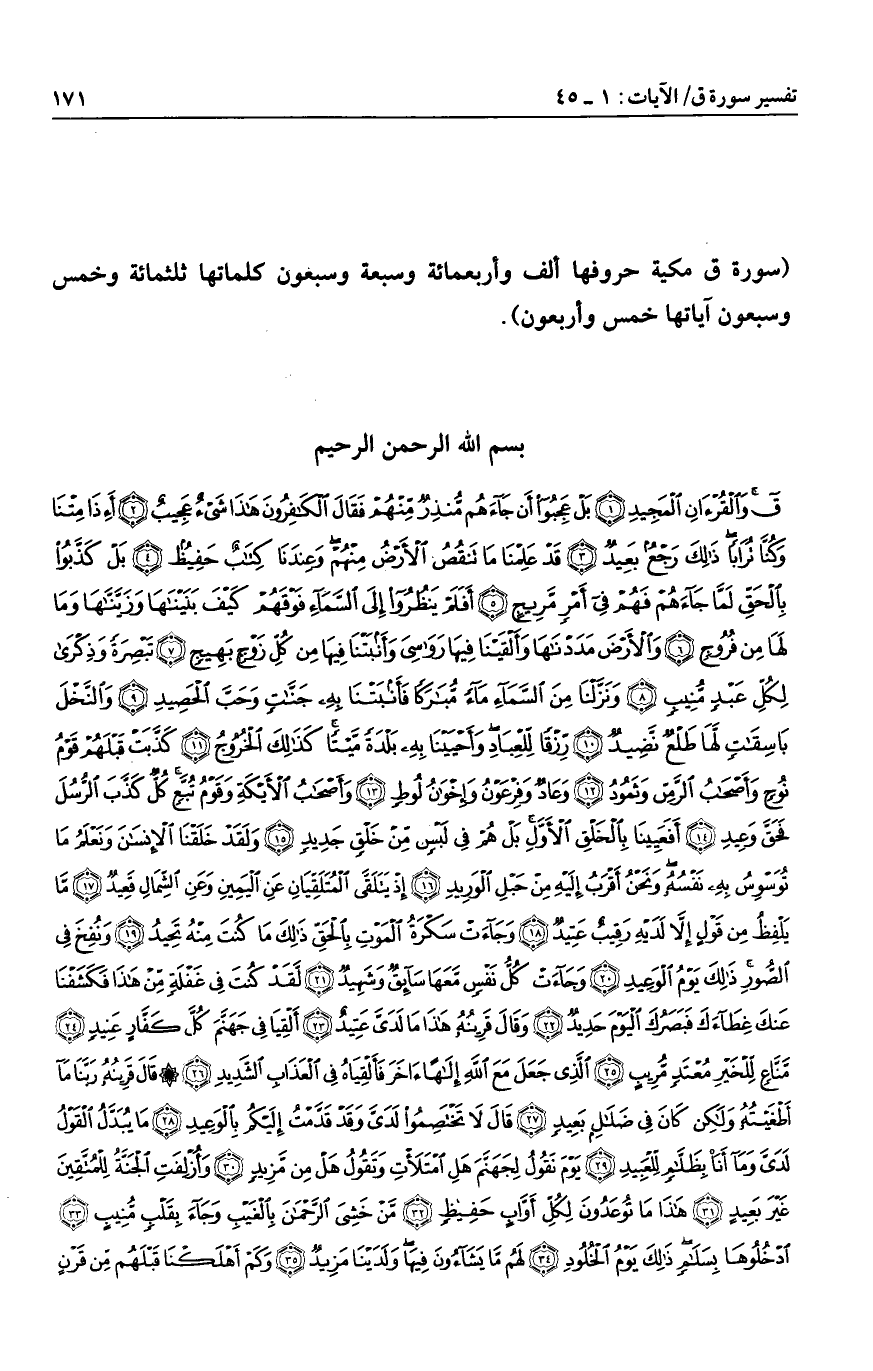 تفسير سورة ق/ الآيات: ١ ـ ٤٥ ١٧١
(سورة ق مكية حروفها ألف وأربعمائة وسبعة وسبغون كلماتها ثلثمائة وخمس
وسبعون آياتها خمس وأربعون).
بسم الله الرحمن الرحيم
قٓۚ وَٱلْقُرْءَانِ ٱلْمَجِيدِ ١ بَلْ عَجِبُوٓا۟ أَن جَآءَهُم مُّنذِرٌ مِّنْهُمْ فَقَالَ ٱلْكَٰفِرُونَ هَٰذَا شَىْءٌ عَجِيبٌ ٢ أَءِذَا مِتْنَا
وَكُنَّا تُرَابًاۖ ذَٰلِكَ رَجْعٌۢ بَعِيدٌ ٣ قَدْ عَلِمْنَا مَا تَنقُصُ ٱلْأَرْضُ مِنْهُمْۖ وَعِندَنَا كِتَٰبٌ حَفِيظٌۢ ٤ بَلْ كَذَّبُوا۟
بِٱلْحَقِّ لَمَّا جَآءَهُمْ فَهُمْ فِىٓ أَمْرٍ مَّرِيجٍ ٥ أَفَلَمْ يَنظُرُوٓا۟ إِلَى ٱلسَّمَآءِ فَوْقَهُمْ كَيْفَ بَنَيْنَٰهَا وَزَيَّنَّٰهَا وَمَا
لَهَا مِن فُرُوجٍ ٦ وَٱلْأَرْضَ مَدَدْنَٰهَا وَأَلْقَيْنَا فِيهَا رَوَٰسِىَ وَأَنۢبَتْنَا فِيهَا مِن كُلِّ زَوْجٍۭ بَهِيجٍ ٧ تَبْصِرَةً وَذِكْرَىٰ
لِكُلِّ عَبْدٍ مُّنِيبٍ ٨ وَنَزَّلْنَا مِنَ ٱلسَّمَآءِ مَآءً مُّبَٰرَكًا فَأَنۢبَتْنَا بِهِۦ جَنَّٰتٍ وَحَبَّ ٱلْحَصِيدِ ٩ وَٱلنَّخْلَ
بَاسِقَٰتٍ لَّهَا طَلْعٌ نَّضِيدٌ ١٠ رِّزْقًا لِّلْعِبَادِۖ وَأَحْيَيْنَا بِهِۦ بَلْدَةً مَّيْتًاۚ كَذَٰلِكَ ٱلْخُرُوجُ ١١ كَذَّبَتْ قَبْلَهُمْ قَوْمُ
نُوحٍ وَأَصْحَٰبُ ٱلرَّسِّ وَثَمُودُ ١٢ وَعَادٌ وَفِرْعَوْنُ وَإِخْوَٰنُ لُوطٍ ١٣ وَأَصْحَٰبُ ٱلْأَيْكَةِ وَقَوْمُ تُبَّعٍۚ كُلٌّ كَذَّبَ ٱلرُّسُلَ
فَحَقَّ وَعِيدِ ١٤ أَفَعَيِينَا بِٱلْخَلْقِ ٱلْأَوَّلِۚ بَلْ هُمْ فِى لَبْسٍ مِّنْ خَلْقٍ جَدِيدٍ ١٥ وَلَقَدْ خَلَقْنَا ٱلْإِنسَٰنَ وَنَعْلَمُ مَا
تُوَسْوِسُ بِهِۦ نَفْسُهُۥۖ وَنَحْنُ أَقْرَبُ إِلَيْهِ مِنْ حَبْلِ ٱلْوَرِيدِ ١٦ إِذْ يَتَلَقَّى ٱلْمُتَلَقِّيَانِ عَنِ ٱلْيَمِينِ وَعَنِ ٱلشِّمَالِ قَعِيدٌ ١٧ مَّا
يَلْفِظُ مِن قَوْلٍ إِلَّا لَدَيْهِ رَقِيبٌ عَتِيدٌ ١٨ وَجَآءَتْ سَكْرَةُ ٱلْمَوْتِ بِٱلْحَقِّۖ ذَٰلِكَ مَا كُنتَ مِنْهُ تَحِيدُ ١٩ وَنُفِخَ فِى
ٱلصُّورِۚ ذَٰلِكَ يَوْمُ ٱلْوَعِيدِ ٢٠ وَجَآءَتْ كُلُّ نَفْسٍ مَّعَهَا سَآئِقٌ وَشَهِيدٌ ٢١ لَّقَدْ كُنتَ فِى غَفْلَةٍ مِّنْ هَٰذَا فَكَشَفْنَا
عَنكَ غِطَآءَكَ فَبَصَرُكَ ٱلْيَوْمَ حَدِيدٌ ٢٢ وَقَالَ قَرِينُهُۥ هَٰذَا مَا لَدَىَّ عَتِيدٌ ٢٣ أَلْقِيَا فِى جَهَنَّمَ كُلَّ كَفَّارٍ عَنِيدٍ ٢٤
مَّنَّاعٍ لِّلْخَيْرِ مُعْتَدٍ مُّرِيبٍ ٢٥ ٱلَّذِى جَعَلَ مَعَ ٱللَّهِ إِلَٰهًا ءَاخَرَ فَأَلْقِيَاهُ فِى ٱلْعَذَابِ ٱلشَّدِيدِ ٢٦ ۞ قَالَ قَرِينُهُۥ رَبَّنَا مَآ
أَطْغَيْتُهُۥ وَلَٰكِن كَانَ فِى ضَلَٰلٍۭ بَعِيدٍ ٢٧ قَالَ لَا تَخْتَصِمُوا۟ لَدَىَّ وَقَدْ قَدَّمْتُ إِلَيْكُم بِٱلْوَعِيدِ ٢٨ مَا يُبَدَّلُ ٱلْقَوْلُ
لَدَىَّ وَمَآ أَنَا۠ بِظَلَّٰمٍ لِّلْعَبِيدِ ٢٩ يَوْمَ نَقُولُ لِجَهَنَّمَ هَلِ ٱمْتَلَأْتِ وَتَقُولُ هَلْ مِن مَّزِيدٍ ٣٠ وَأُزْلِفَتِ ٱلْجَنَّةُ لِلْمُتَّقِينَ
غَيْرَ بَعِيدٍ ٣١ هَٰذَا مَا تُوعَدُونَ لِكُلِّ أَوَّابٍ حَفِيظٍ ٣٢ مَّنْ خَشِىَ ٱلرَّحْمَٰنَ بِٱلْغَيْبِ وَجَآءَ بِقَلْبٍ مُّنِيبٍ ٣٣
ٱدْخُلُوهَا بِسَلَٰمٍۖ ذَٰلِكَ يَوْمُ ٱلْخُلُودِ ٣٤ لَهُم مَّا يَشَآءُونَ فِيهَا وَلَدَيْنَا مَزِيدٌ ٣٥ وَكَمْ أَهْلَكْنَا قَبْلَهُم مِّن قَرْنٍ